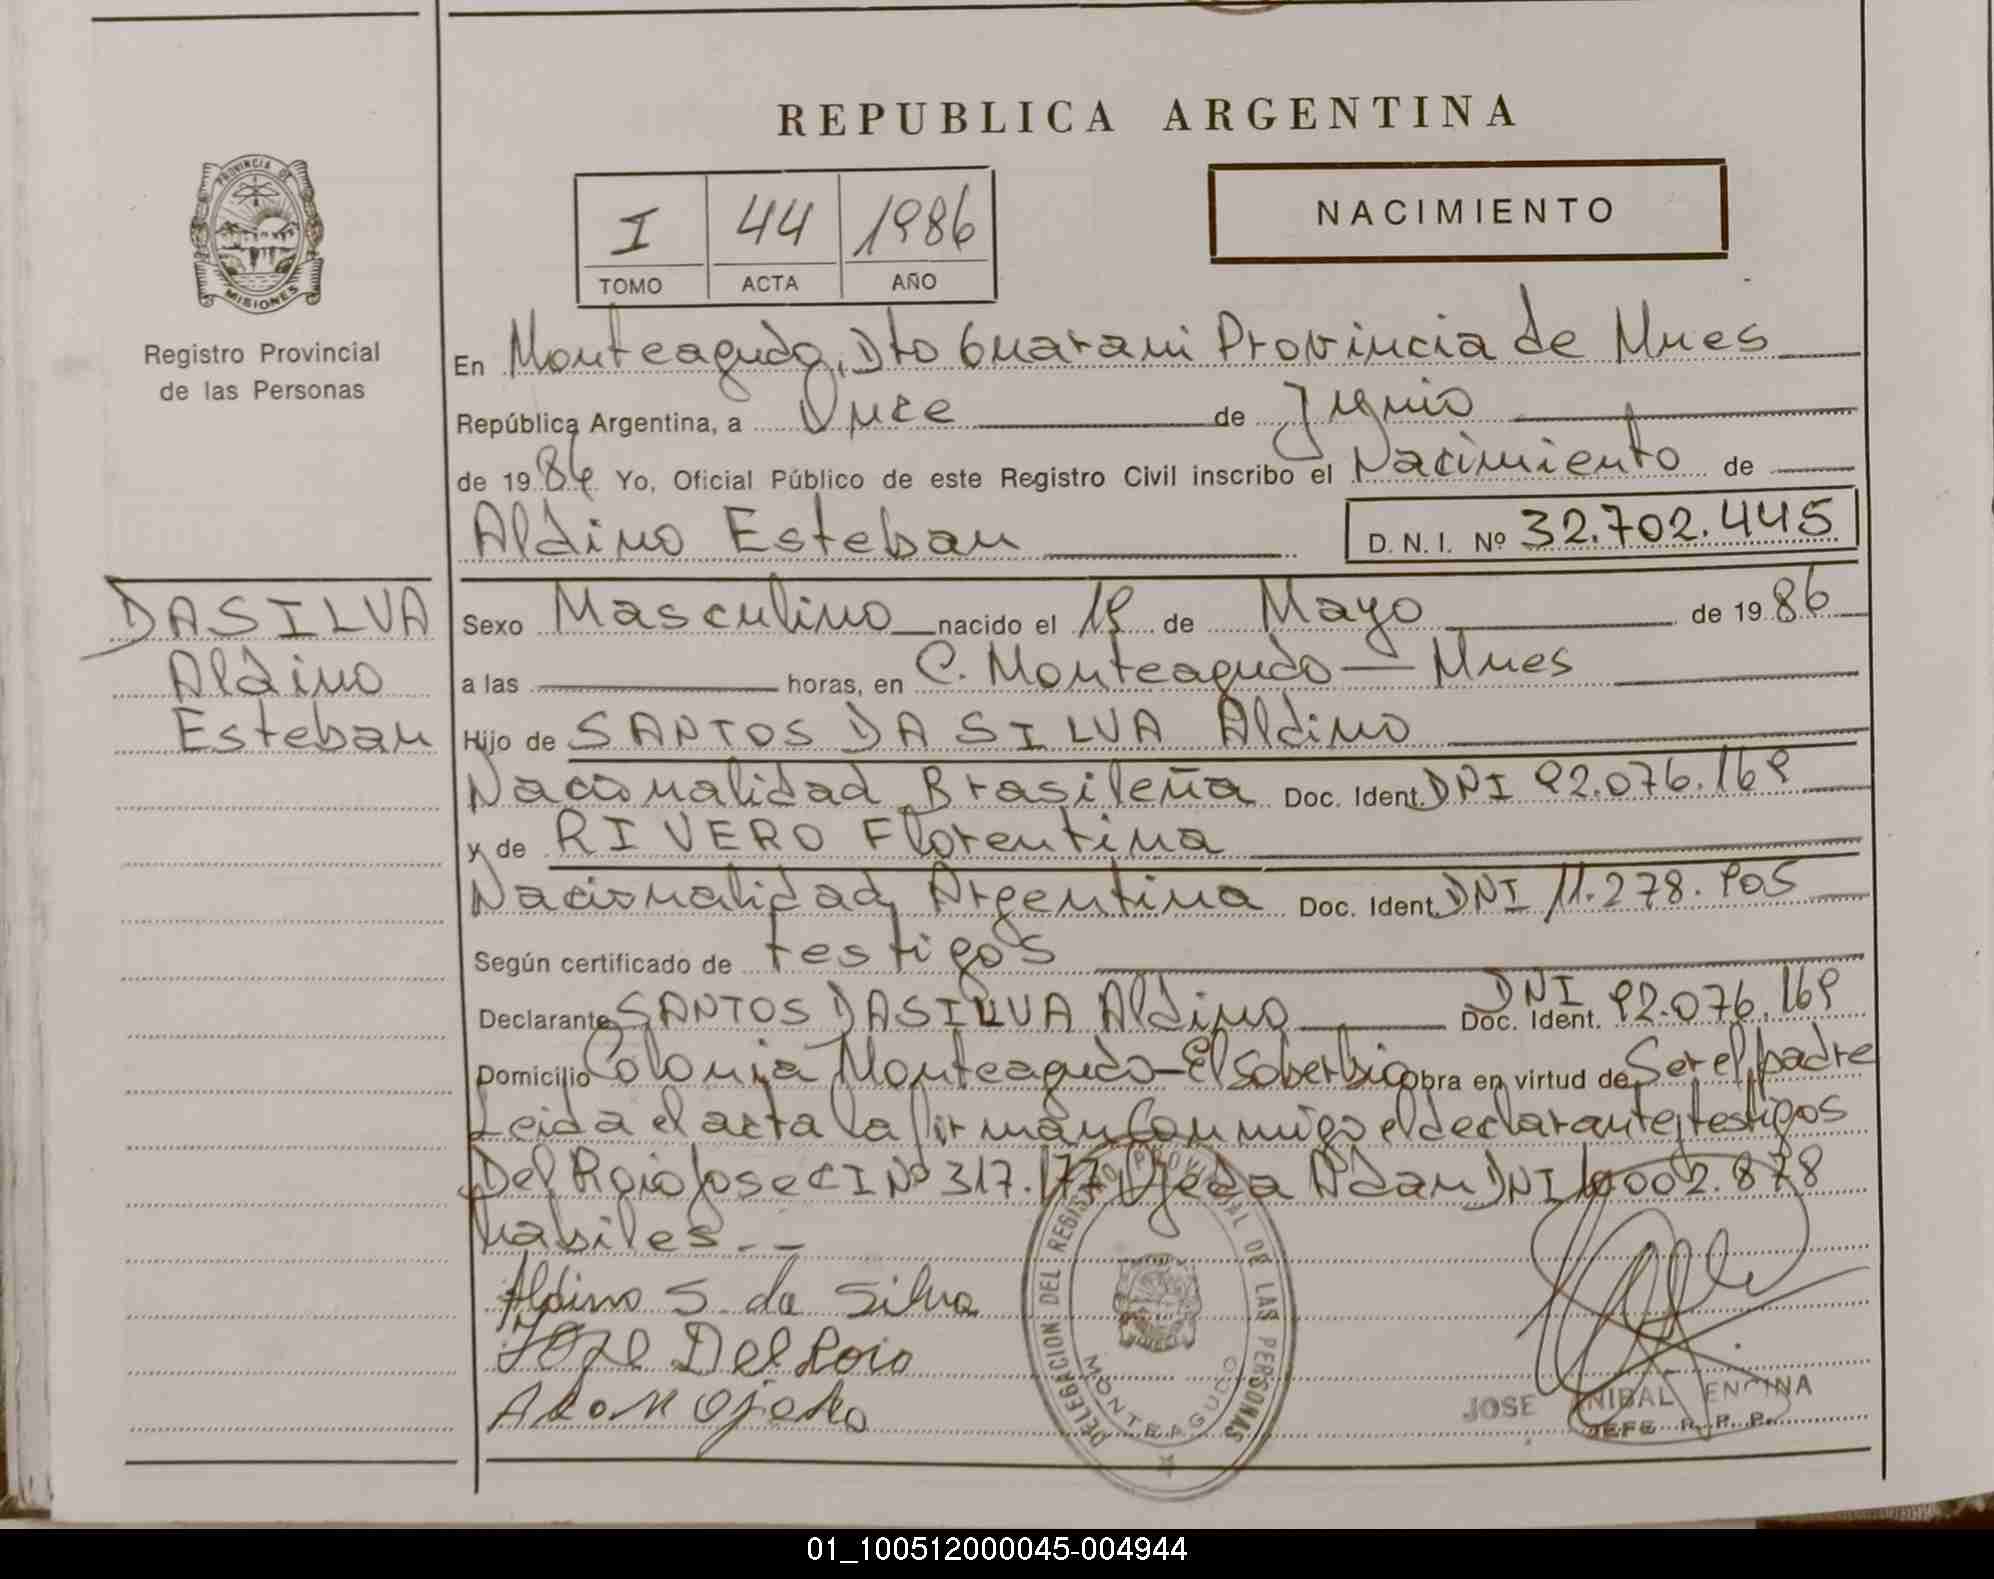 REPUBLICA ARGENTINA
PROVINCIA DE
MISIONES
Registro Provincial
de las Personas
I 44 1986
TOMO ACTA AÑO
NACIMIENTO
En Monteagudo, Dto Guarani Provincia de Mnes
República Argentina, a Once de Junio
de 1986 Yo, Oficial Público de este Registro Civil inscribo el Nacimiento de
Aldino Esteban D.N.I. Nº 32.702.445
DASILVA
Aldino
Esteban
Sexo Masculino nacido el 19 de Mayo de 1986
a las horas, en C. Monteagudo - Mnes
Hijo de SANTOS DA SILVA Aldino
Nacionalidad Brasileña Doc. Ident. DNI 92.076.169
y de RIVERO Florentina
Nacionalidad Argentina Doc. Ident. DNI 11.278.905
Según certificado de testigos
Declarante SANTOS DASILVA Aldino Doc. Ident. DNI 92.076.169
Domicilio Colonia Monteagudo - El Soberbio obra en virtud de Ser el padre
Leida el acta la firman Conmigo el declarante, testigos
Del Roio Jose CI Nº 317.177 Ojeda Adan DNI 002.878
habiles. --
Aldino S. da Silva
Jose Del Roio
Adan Ojeda
DELEGACION DEL REGISTRO PROVINCIAL DE LAS PERSONAS
MONTEAGUDO
JOSE ANIBAL ENCINA
JEFE R. P. P.
01_100512000045-004944